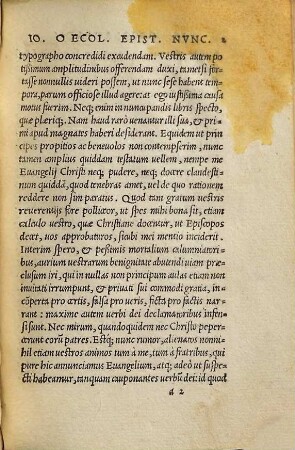 IO. OECOL. EPIST. NVNC.
typographo concredidi exaudendam. Vestris autem po
tißimum amplitudinibus offerendam duxi, tametsi for
tasse nonnullis uideri possem, ut nunc sese habent tem-
pora, parum officiose illud agere: at ego iustißima causa
motus fuerim. Neq; enim in nuncupandis libris specto,
quæ pleriq;. Nam haud raro uenantur illi sua, & pri
mi apud magnates haberi desiderant. Equidem ut prin
cipes propitios ac beneuolos non contempserim, nunc
tamen amplius quiddam testatum uellem, nempe me
Euangelij Christi neq; pudere, neq; docere clandesti-
num quiddã, quod tenebras amet, uel de quo rationem
reddere non sim paratus. Quod tam gratum uestris
reuerentijs fore polliceor, ut spes mihi bona sit, etiam
calculo uestro, quæ Christiane docentur, ut Episcopos
decet, uos approbaturos, sicubi mei mentio inciderit.
Interim spero, & peßimis mortalium calumniatori-
bus, aurium uestrarum benignitate abutendi uiam præ
clusum iri, qui in nullas non principum aulas etiam non
inuitati irrumpunt, & priuati sui commodi gratia, in-
cõperta pro certis, falsa pro ueris, ficta pro factis nar-
rant: maxime autem uerbi dei declamatoribus infen-
si sunt. Nec mirum, quandoquidem nec Christo peper-
cerunt eorũ patres. Estq; nunc rumor, alienatos nonni-
hil etiam uestros animos tum à me, tum à fratribus, qui
pure hic annunciamus Euangelium, atq; adeo ut suspe-
cti habeamur, tanquam cauponantes uerbũ dei: id quod
a 2